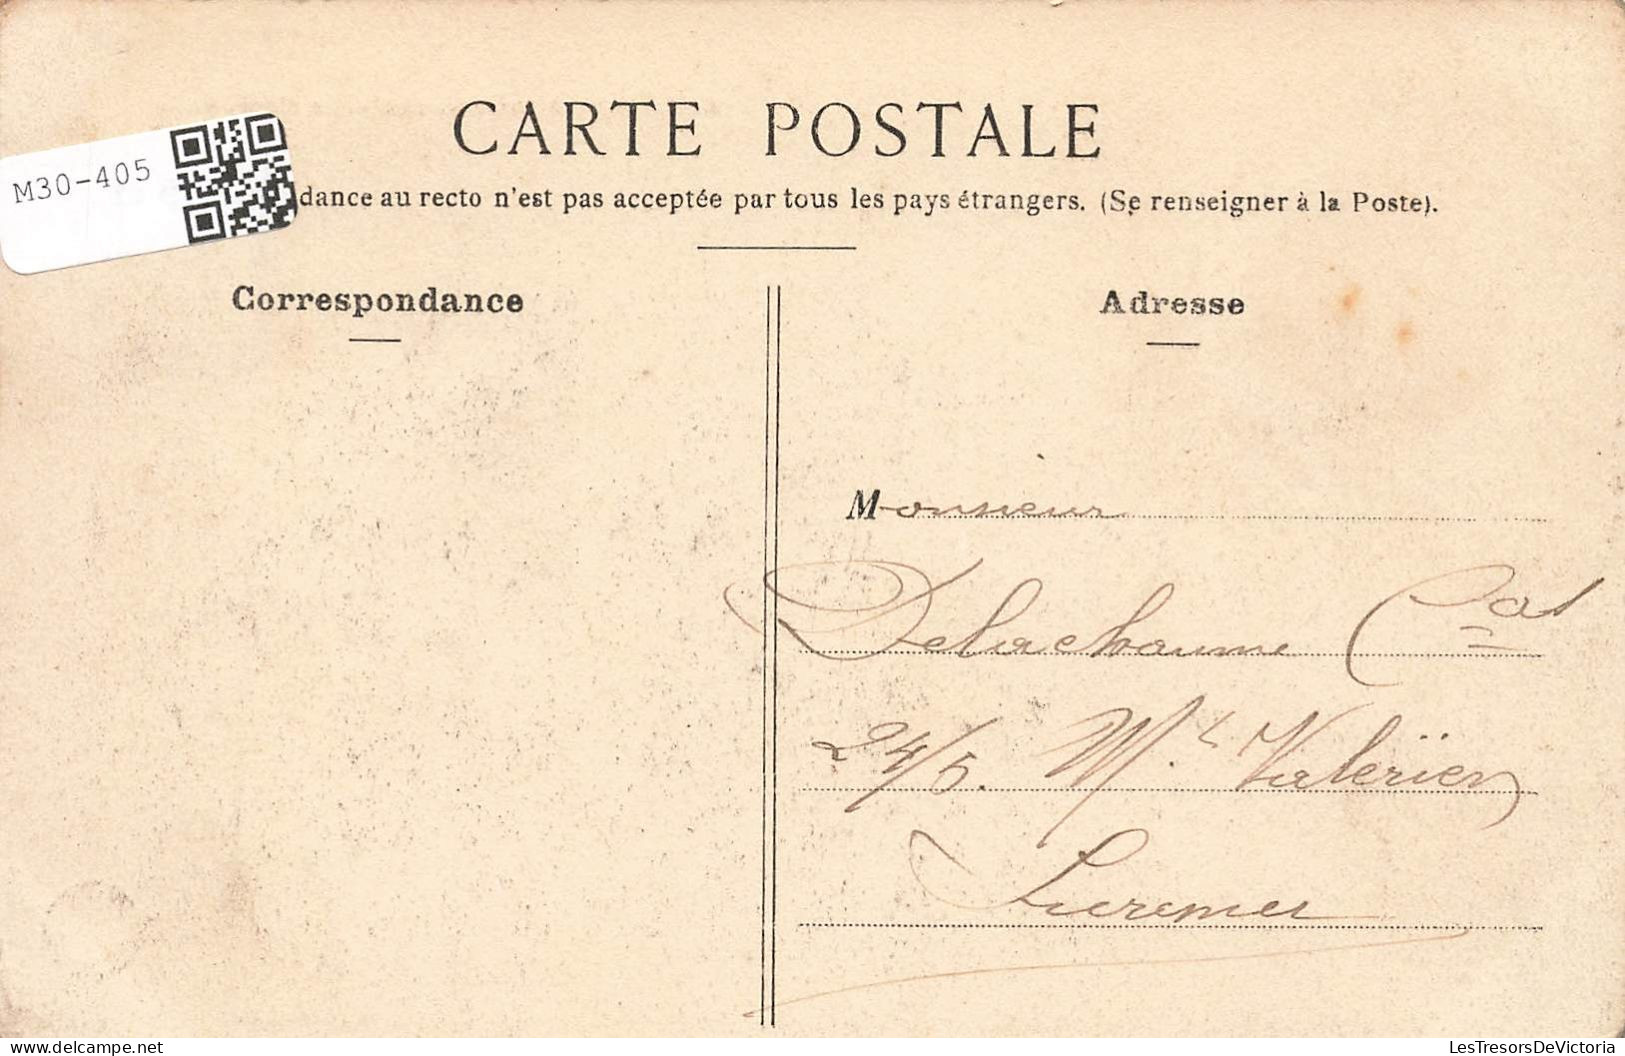 CARTE POSTALE
M30-405
dance au recto n'est pas acceptée par tous les pays étrangers. (Se renseigner à la Poste).
Correspondance
Adresse
Monsieur
Delachaume Cal
24/5. Mt Valérien
LesTresorsDeVictoria
delcampe.net